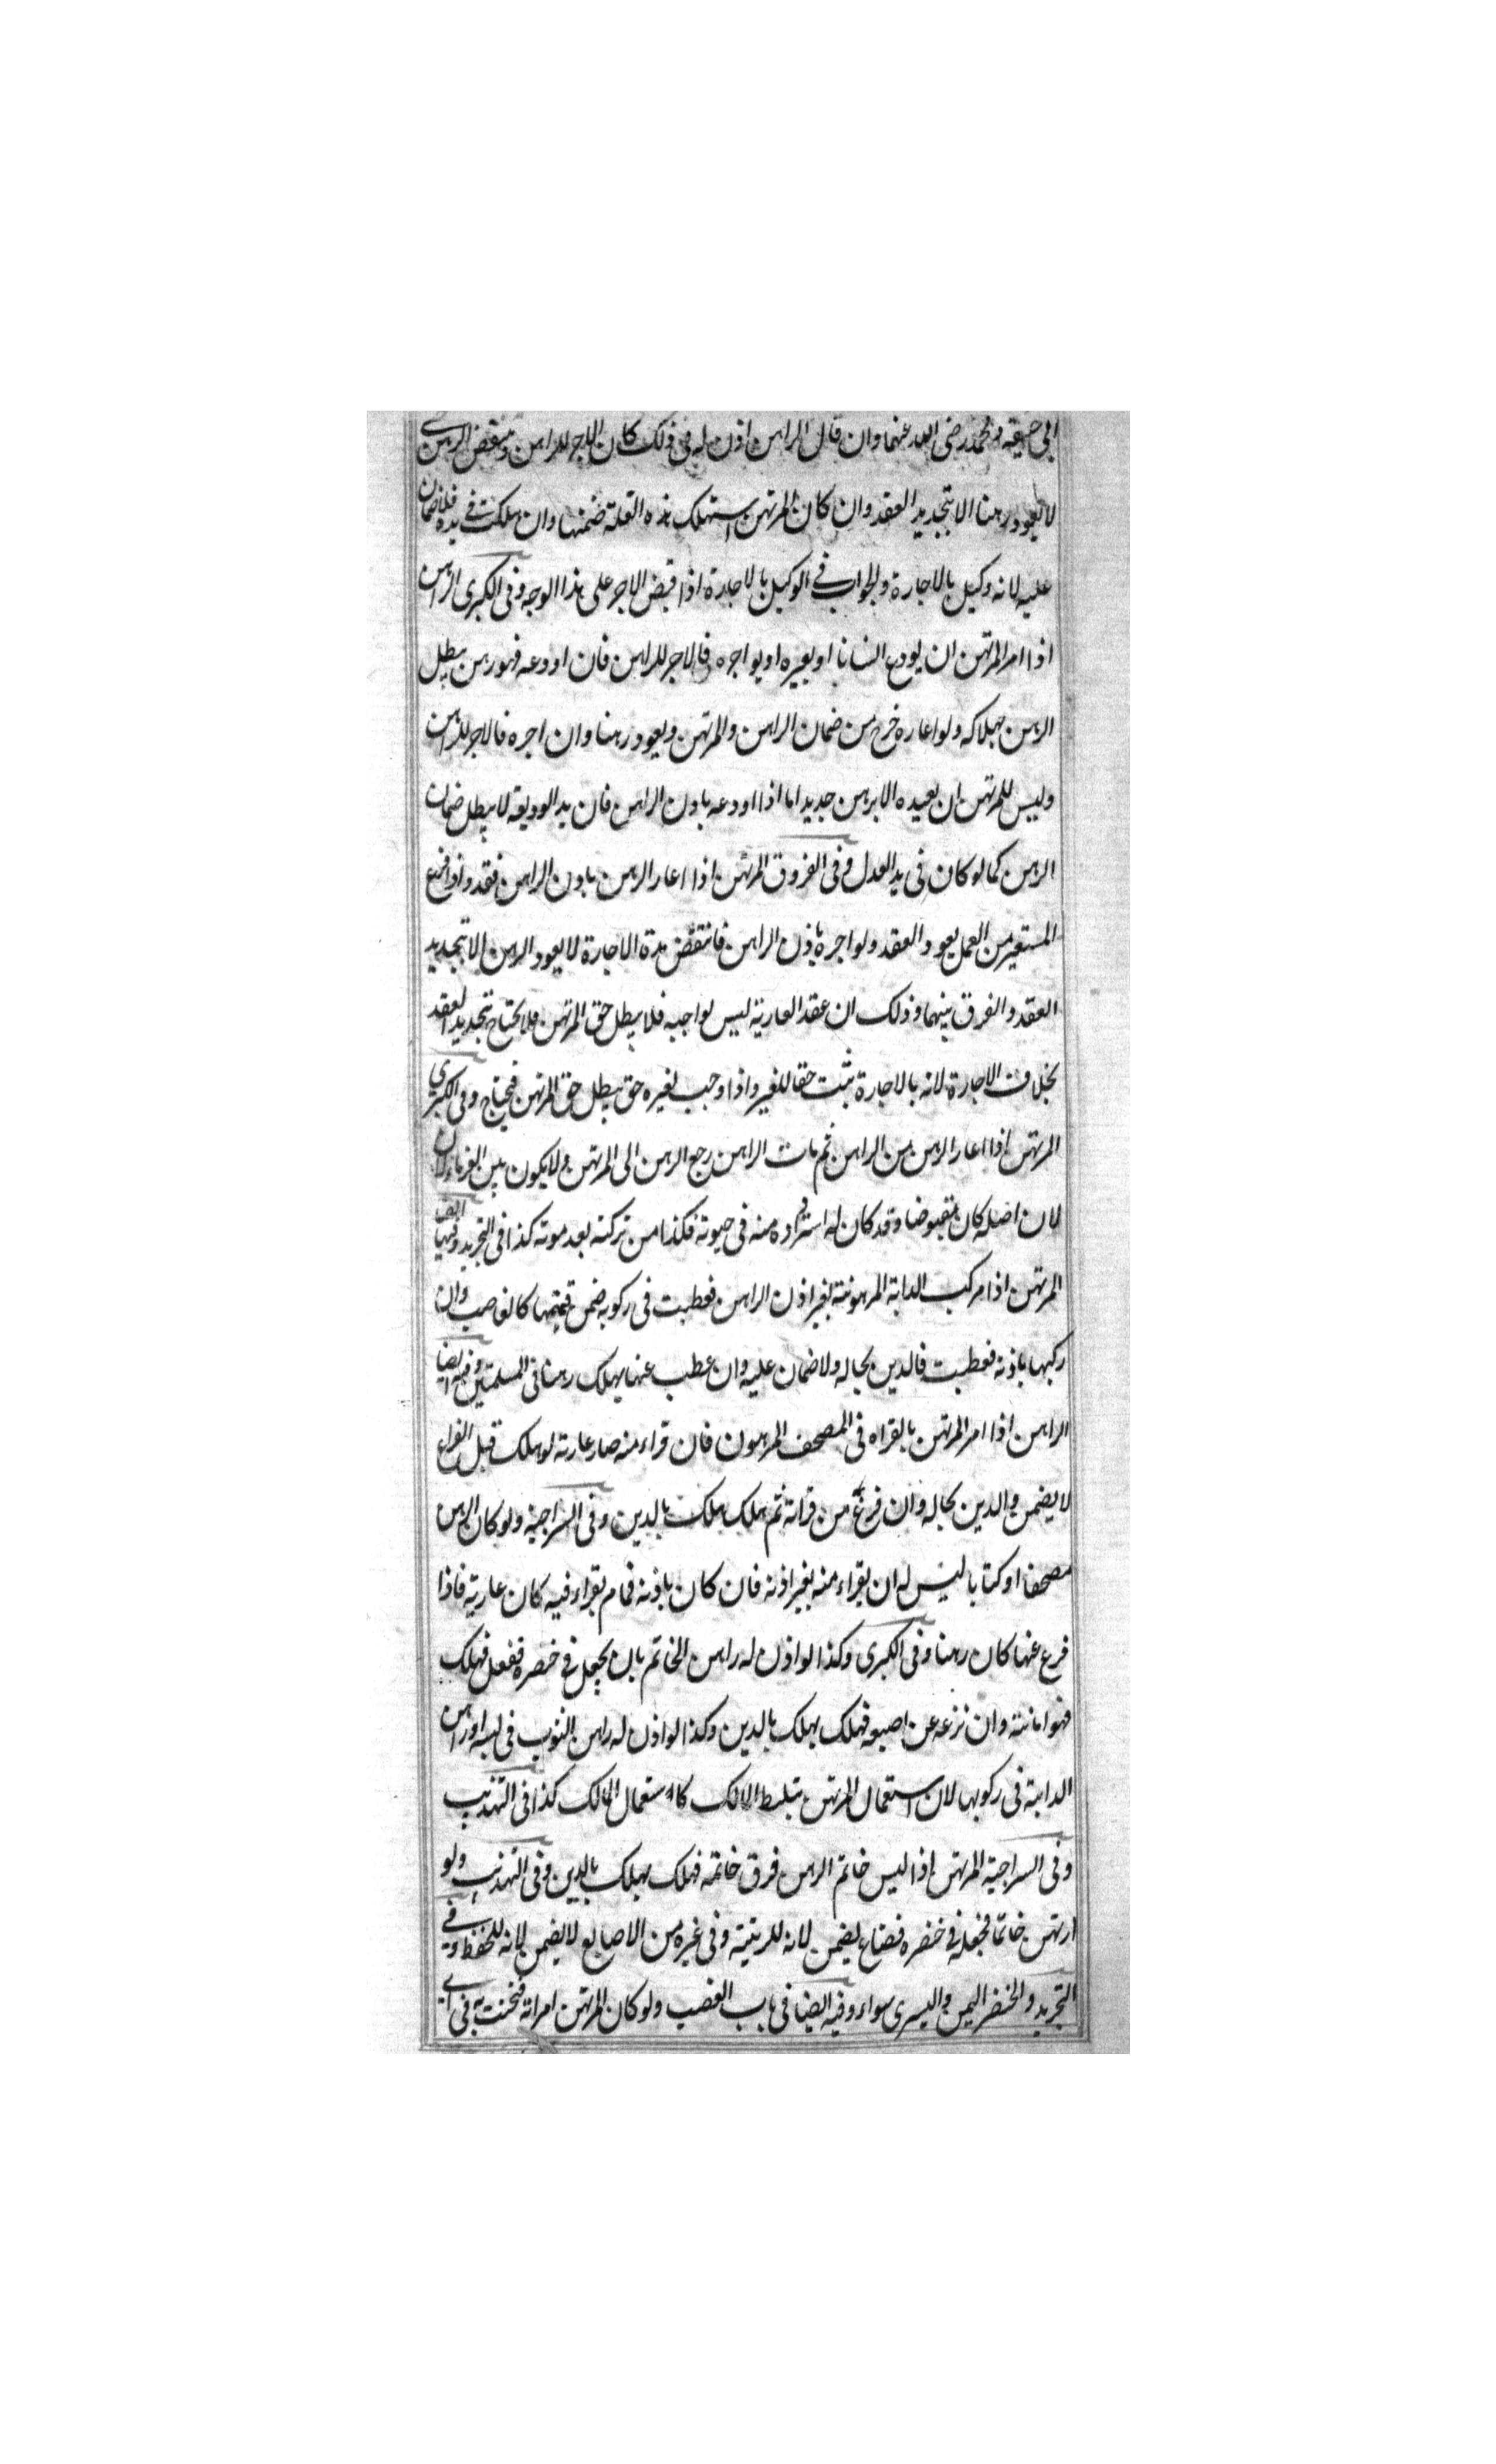 ابى حنيفة ومحمد رضى الله عنهما وان قال الراهن اذن له فى ذلك كان الاجر للراهن وينقض الرهن حتى
لا يعود رهنا الا بتجديد العقد وان كان المرتهن استهلك هذه الغلة ضمنها وان هلكت فى يده فلا ضمان
عليه لانه وكيل بالاجارة والجواب فى الوكيل بالاجارة اذا قبض الاجر على هذا الوجه وفى الكبرى الراهن
اذا امر المرتهن ان يودع انسانا او يعيره او يواجره فالاجر للراهن فان اودعه فهو رهن يبطل
الرهن بهلاكه ولو اعاره خرج من ضمان الراهن والمرتهن ويعود رهنا وان اجره فالاجر للراهن
وليس للمرتهن ان يعيده الا برهن جديد اما اذا اودعه باذن الراهن فان يد الوديعة لا يبطل ضمان
الرهن كما لو كان فى يد العدل وفى الفروق المرتهن اذا اعار الرهن باذن الراهن فقد واذا فرغ
المستعير من العمل يعود العقد ولو اجره باذن الراهن فانتقض مدة الاجارة لا يعود الرهن الا بتجديد
العقد والفرق بينهما وذلك ان عقد العارية ليس لواجبه فلا يبطل حق المرتهن فلا يحتاج بتجديد العقد
بخلاف الاجارة لانه بالاجارة يثبت حقا للغير واذا وجب لغيره حق يبطل حق المرتهن فيحتاج وفى الكبرى
المرتهن اذا اعار الرهن من الراهن ثم مات الراهن رجع الرهن الى المرتهن ولا يكون بين الغرماء لان
لان اصله كان مقبوضا وقد كان له استرداده منه فى حيوته فكذا من تركته بعد موته كذا فى التجريد وفيها ايضا
المرتهن اذا مركب الدابة المرهونة بغير اذن الراهن فعطبت فى ركوبه ضمن قيمتها كالغاصب وان
ركبها باذنه فعطبت فالدين بحاله ولا ضمان عليه وان عطب عنها يهلك رهنا فى المسلمتين وفيه ايضا
الراهن اذا امر المرتهن بالقراه فى المصحف المرهون فان قراء منه صار عارية لو هلك قبل الفراغ
لا يضمن والدين بحاله وان فرغ من قراته ثم هلك هلك بالدين وفى السراجية ولو كان الرهن
مصحفا او كتابا ليس له ان يقراء منه بغير اذنه فان كان باذنه فمام يقراء فيه كان عارية فاذا
فرغ عنها كان رهنا وفى الكبرى وكذا لو اذن له راهن الخاتم بان يجعل فى خنصره ففعل فهلك
فهو امانته وان نزعه عن اصبعه فهلك يهلك بالدين وكذا لو اذن له راهن الثوب فى لبسه او راهن
الدابة فى ركوبها لان استعمال المرتهن بتسليط المالك كاستعمال المالك كذا فى التهذيب
وفى السراجية المرتهن اذا لبس خاتم الرهن فرق خاتمه فهلك يهلك بالدين وفى التهذيب ولو
ارتهن خاتما فجعله فى خنصره فضاع يضمن لانه للزينة وفى غيره من الاصابع لا يضمن لانه للحفظ وفى
التجريد والخنصر اليمن واليسرى سواء وفيه ايضا فى باب الغصب ولو كان المرتهن امراة فتختمت به فى اى